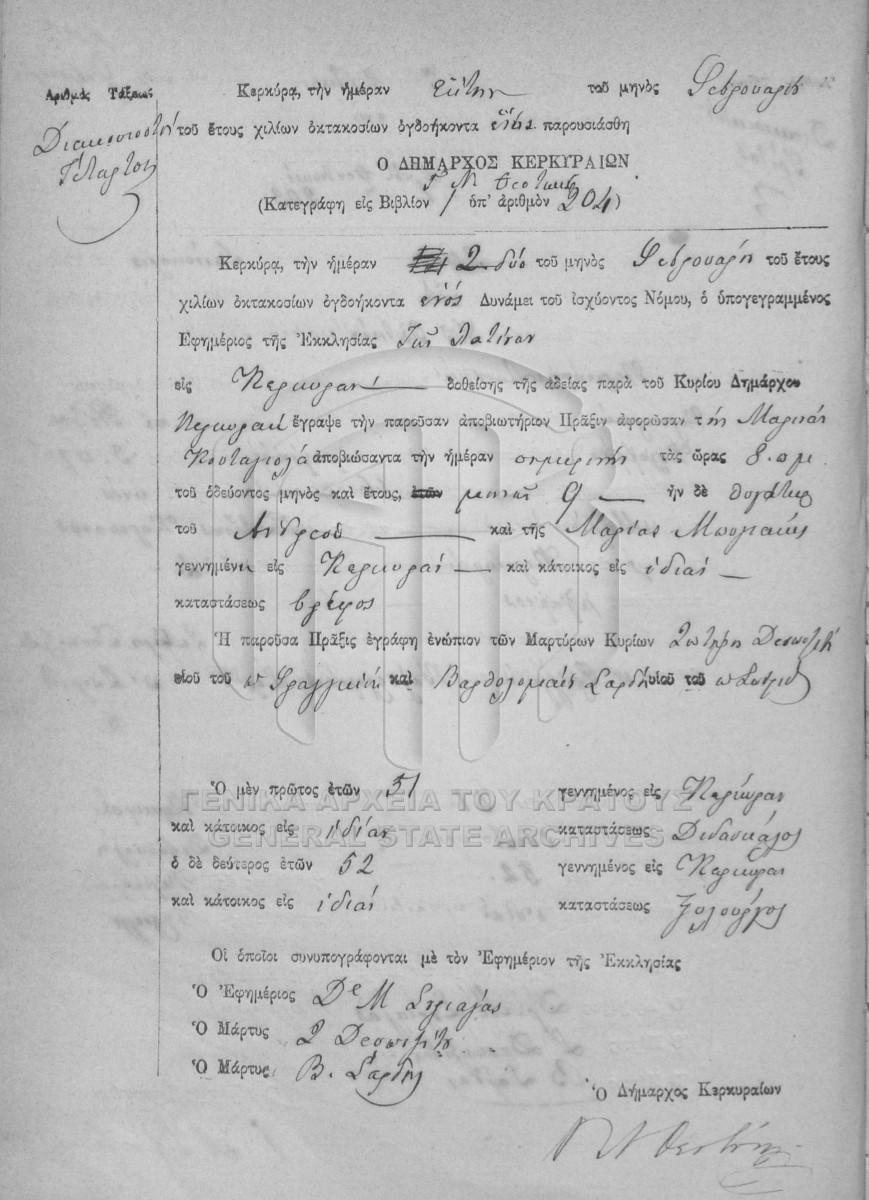 Ἀριθμὸς Τάξεως
Διακοσιοστὴ
Τετάρτη
Κερκύρα, τὴν ἡμέραν ἕκτην τοῦ μηνὸς Φεβρουαρίου
τοῦ ἔτους χιλίων ὀκτακοσίων ὀγδοήκοντα ἑνός παρουσιάσθη
Ο ΔΗΜΑΡΧΟΣ ΚΕΡΚΥΡΑΙΩΝ
Θεοτόκης
(Κατεγράφη εἰς Βιβλίον 1 ὑπ' ἀριθμὸν 204)
Κερκύρα, τὴν ἡμέραν 2 δύο τοῦ μηνὸς Φεβρουαρίου τοῦ ἔτους
χιλίων ὀκτακοσίων ὀγδοήκοντα ἑνός Δυνάμει τοῦ ἰσχύοντος Νόμου, ὁ ὑπογεγραμμένος
Ἐφημέριος τῆς Ἐκκλησίας τῶν Λατίνων
εἰς Κερκυραν δοθείσης τῆς ἀδείας παρὰ τοῦ Κυρίου Δημάρχου
ἔγραψε τὴν παροῦσαν ἀποβιωτήριον Πρᾶξιν ἀφορῶσαν τὴν
ἀποβιώσαντα τὴν ἡμέραν σημερινήν τὰς ὥρας 8
τοῦ ὁδεύοντος μηνὸς καὶ ἔτους, ἐτῶν μηνῶν 9 ἦν δὲ θυγάτηρ
τοῦ Ανδρεου καὶ τῆς Μαρίας
γεννημένη εἰς Κερκυραν καὶ κάτοικος εἰς ἰδίαν
καταστάσεως βρέφος
Ἡ παροῦσα Πρᾶξις ἐγράφη ἐνώπιον τῶν Μαρτύρων Κυρίων
υἱοῦ τοῦ καὶ Βαρθολομαίου Σάρδη υἱοῦ τοῦ
Ὁ μὲν πρῶτος ἐτῶν 51 γεννημένος εἰς Κερκυραν
ΓΕΝΙΚΑ ΑΡΧΕΙΑ ΤΟΥ ΚΡΑΤΟΥΣ
καὶ κάτοικος εἰς ἰδίαν καταστάσεως Διδασκάλος
GENERAL STATE ARCHIVES
ὁ δὲ δεύτερος ἐτῶν 52 γεννημένος εἰς Κερκυραν
καὶ κάτοικος εἰς ἰδίαν καταστάσεως ξυλουργος
Οἱ ὁποῖοι συνυπογράφονται μὲ τὸν Ἐφημέριον τῆς Ἐκκλησίας
Ὁ Ἐφημέριος
Ὁ Μάρτυς
Ὁ Μάρτυς Β. Σάρδης
Ὁ Δήμαρχος Κερκυραίων